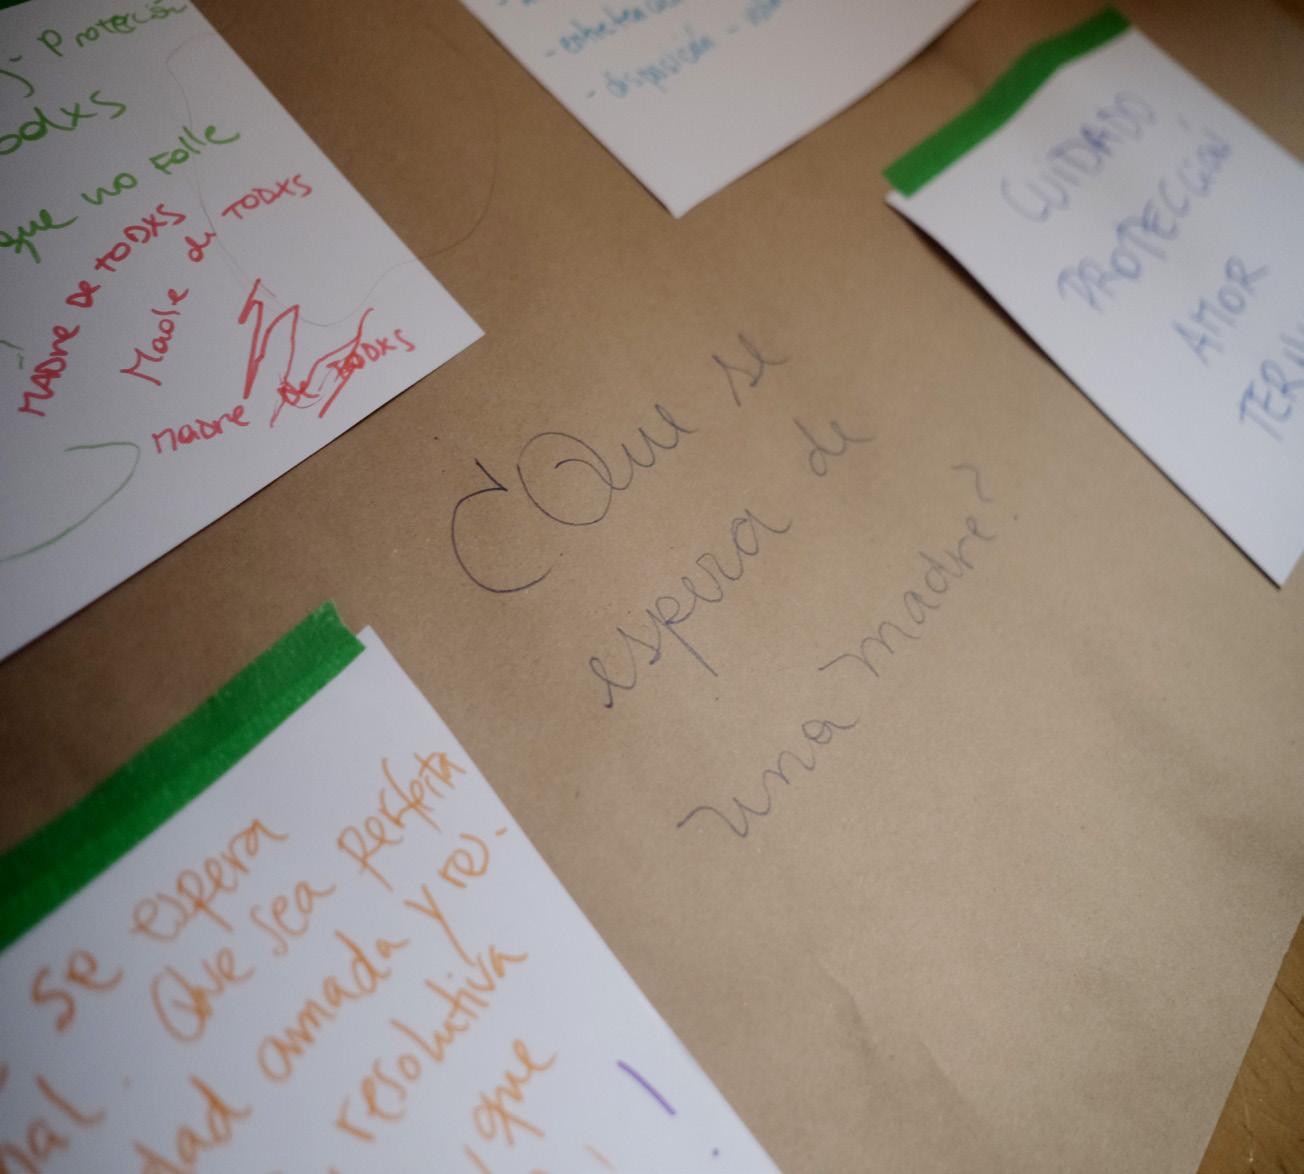 Protección
odxs
que no Folle
MADRe De toDXS
Madre de TODXS
Madre de TODXS
- disposición -
CUIDADO
PROTECCIÓN
AMOR
¿Que se
espera de
una madre?
Se espera
Que sea perfeita
dad armada y res-
resolutiva
que